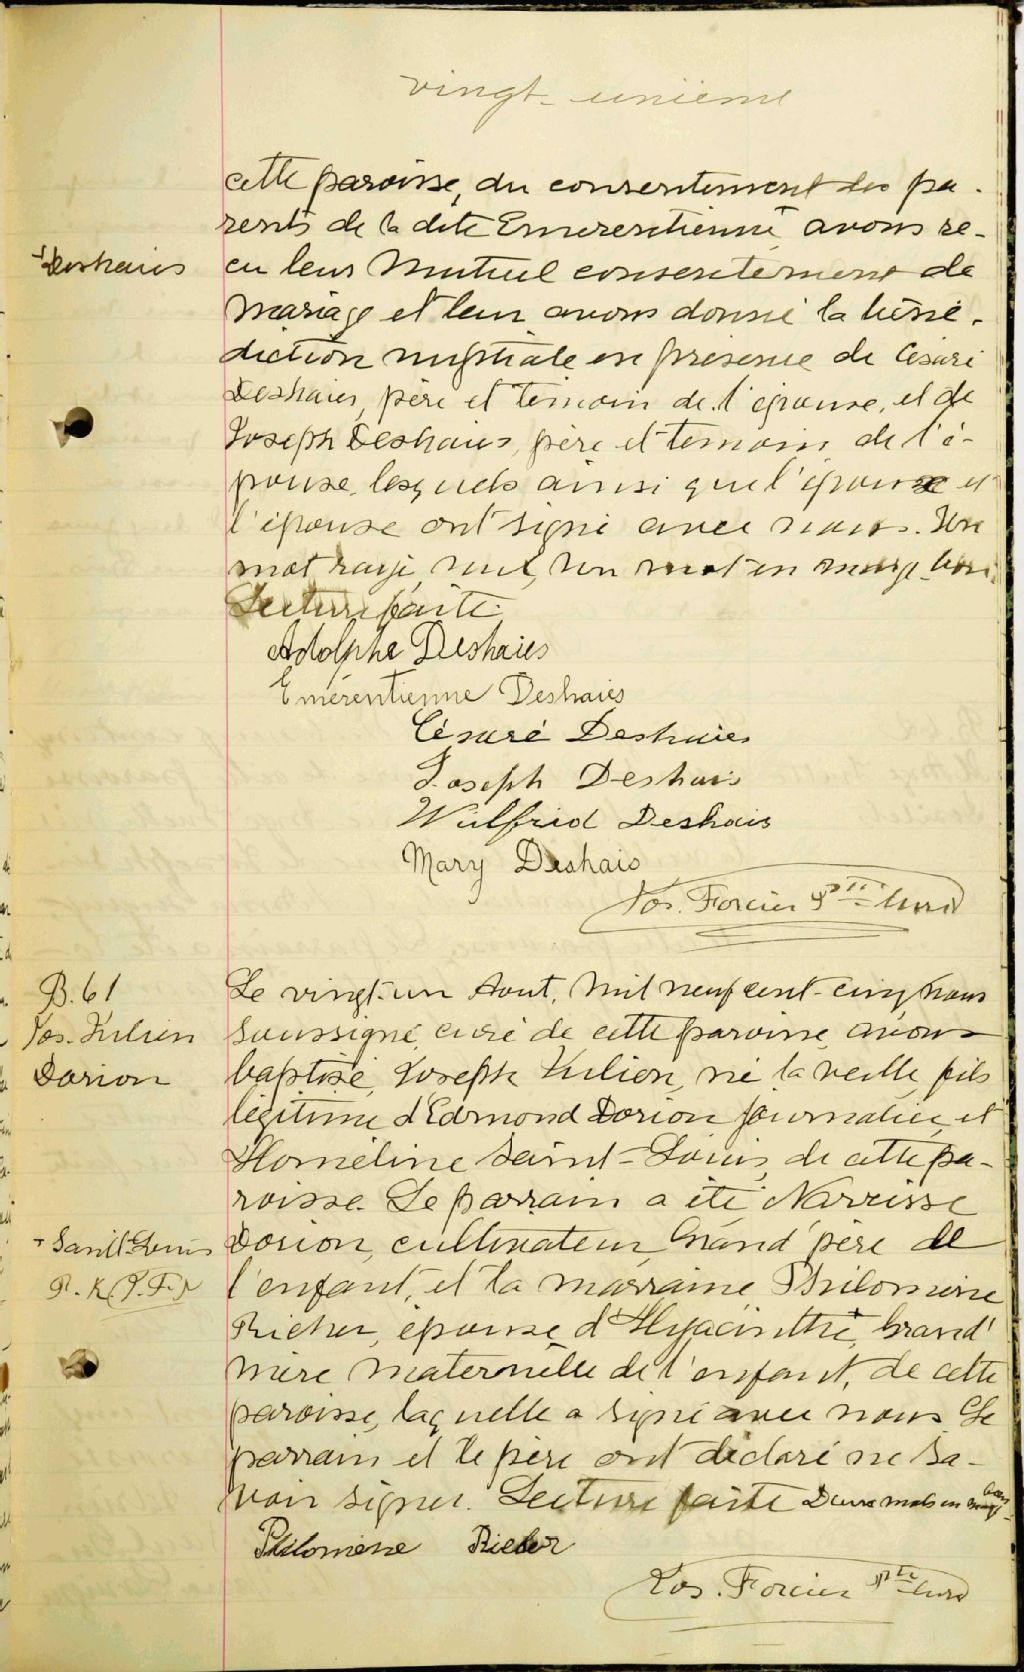 vingt-unieme
cette paroisse, du consentement des pa-
rents de la dite Emerentienne + avons re-
+ Deshaies
cu leur mutuel consentement de
mariage et leur avons donné la béné-
diction nuptiale en présence de Césaré
Deshaies, père et témoin de l'épouse, et de
Joseph Deshaies, père et temoin de l'é-
pouse, lesquels ainsi que l'épouse et
l'épouse ont signé avec nous. Un
mot rayé nul, un mot en marge bon.
Lecture faite.
Adolphe Deshaies
Emérentienne Deshaies
Césaré Deshaies
Joseph Deshais
Wilfrid Deshais
Mary Deshais
Jos. Forcier Ptre Curé
B. 61
Jos. Julien
Dorion
Le vingt-un Aout, mil neuf cent-cinq nous
soussigné, curé de cette paroisse, avons
baptisé, Joseph Julien, né la veille, fils
légitime d'Edmond Dorion journalier, et
Homéline Saint-Louis, de cette pa-
roisse. Le parrain a été Narcisse
Dorion, cultivateur, Grand'père de
l'enfant, et la marraine Philomène
+ Saint-Louis
Richer, épouse d'Hyacinthe +, Grand'
mère maternelle de l'enfant, de cette
paroisse, laquelle a signé avec nous Le
parrain et le père ont déclaré ne sa-
voir signer. Lecture faite Deux mots en marge bons
Philomène Richer
Jos. Forcier Ptre Curé